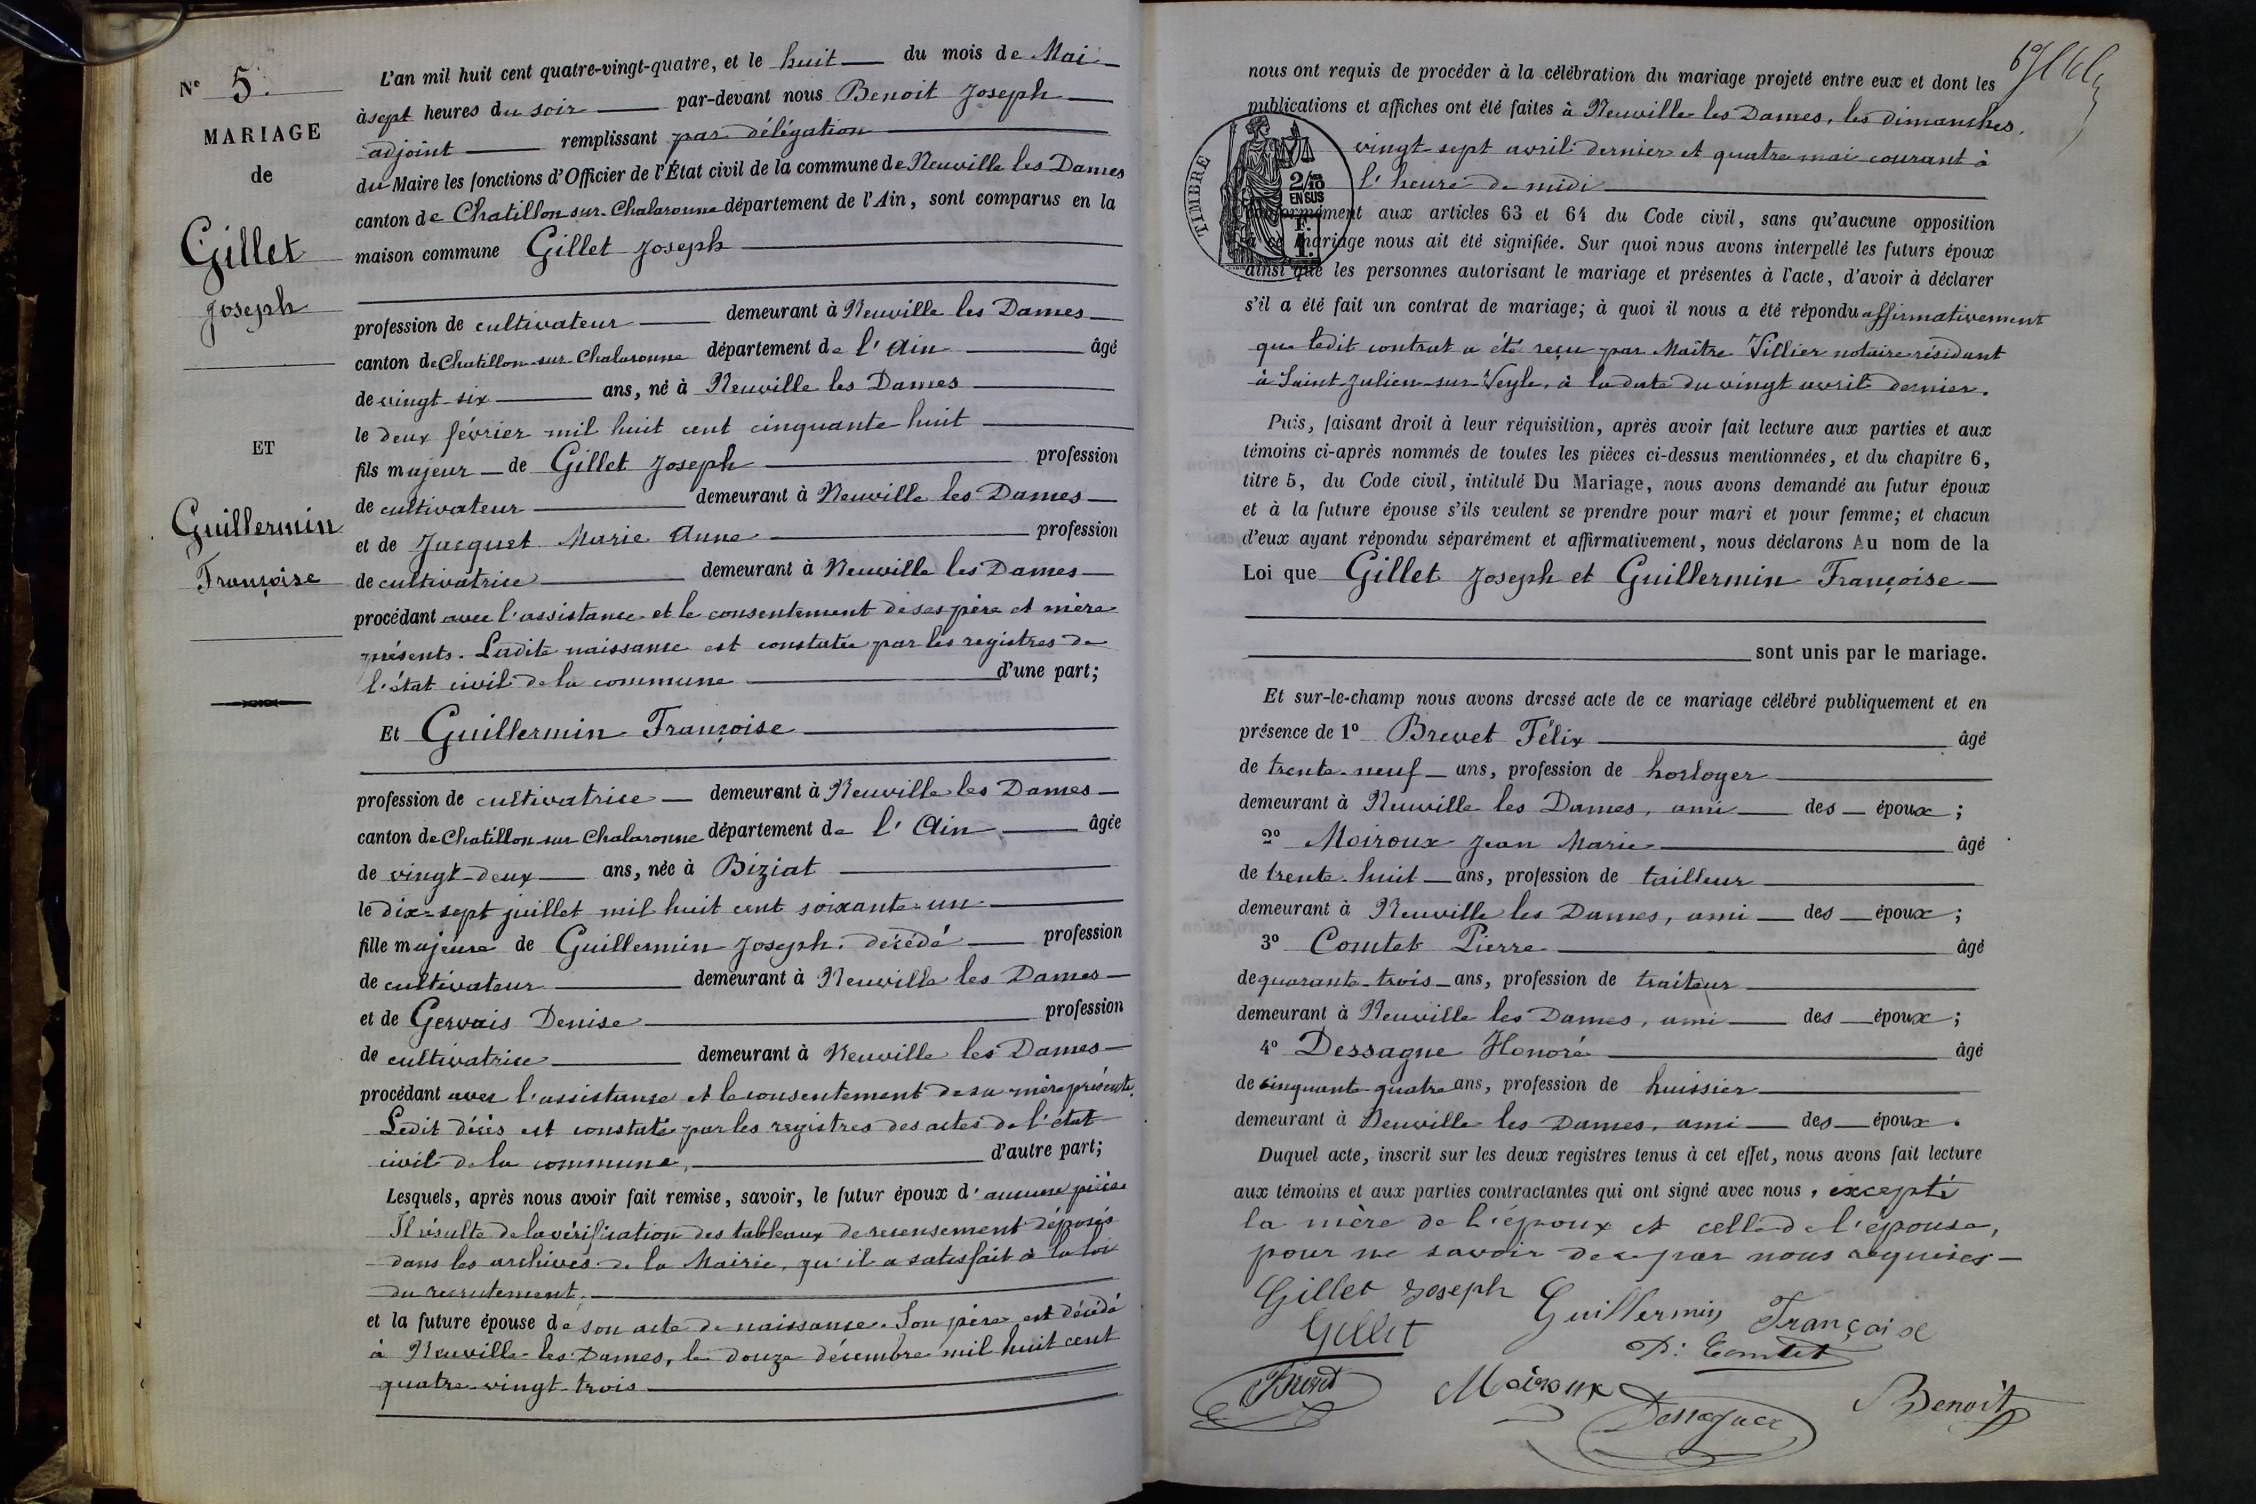 Nº 5.
MARIAGE
de
Gillet
Joseph
ET
Guillermin
Françoise
L'an mil huit cent quatre-vingt-quatre, et le huit du mois de Mai
à sept heures du soir par-devant nous Benoit Joseph
adjoint remplissant par délégation
du Maire les fonctions d'Officier de l'État civil de la commune de Neuville les Dames
canton de Chatillon-sur-Chalaronne département de l'Ain, sont comparus en la
maison commune Gillet Joseph
profession de cultivateur demeurant à Neuville les Dames
canton de Chatillon-sur-Chalaronne département de l'Ain âgé
de vingt-six ans, né à Neuville les Dames
le deux février mil huit cent cinquante huit
fils majeur de Gillet Joseph profession
de cultivateur demeurant à Neuville les Dames
et de Jacquet Marie Anne profession
de cultivatrice demeurant à Neuville les Dames
procédant avec l'assistance et le consentement de ses père et mère
présents. Ladite naissance est constatée par les registres de
l'état civil de la commune d'une part;
Et Guillermin Françoise
profession de cultivatrice demeurant à Neuville les Dames
canton de Chatillon-sur-Chalaronne département de l'Ain âgée
de vingt-deux ans, née à Biziat
le dix-sept juillet mil huit cent soixante-un
fille majeure de Guillermin Joseph, décédé profession
de cultivateur demeurant à Neuville les Dames
et de Gervais Denise profession
de cultivatrice demeurant à Neuville les Dames
procédant avec l'assistance et le consentement de sa mère présente.
Ledit décès est constaté par les registres des actes de l'état
civil de la commune, d'autre part;
Lesquels, après nous avoir fait remise, savoir, le futur époux d'aucune pièce
Il résulte de la vérification des tableaux de recensement déposés
dans les archives de la Mairie, qu'il a satisfait à la loi
du recrutement.
et la future épouse de son acte de naissance. Son père est décédé
à Neuville-les-Dames, le douze décembre mil huit cent
quatre-vingt-trois
nous ont requis de procéder à la célébration du mariage projeté entre eux et dont les
publications et affiches ont été faites à Neuville les Dames, les dimanches
vingt-sept avril dernier et quatre mai courant à
l'heure de midi
TIMBRE
2/10
EN SUS
F.
1.
conformément aux articles 63 et 64 du Code civil, sans qu'aucune opposition
à ce mariage nous ait été signifiée. Sur quoi nous avons interpellé les futurs époux
ainsi que les personnes autorisant le mariage et présentes à l'acte, d'avoir à déclarer
s'il a été fait un contrat de mariage; à quoi il nous a été répondu affirmativement
que ledit contrat a été reçu par Maître Tillier notaire résidant
à Saint-Julien-sur-Veyle, à la date du vingt avril dernier.
Puis, faisant droit à leur réquisition, après avoir fait lecture aux parties et aux
témoins ci-après nommés de toutes les pièces ci-dessus mentionnées, et du chapitre 6,
titre 5, du Code civil, intitulé Du Mariage, nous avons demandé au futur époux
et à la future épouse s'ils veulent se prendre pour mari et pour femme; et chacun
d'eux ayant répondu séparément et affirmativement, nous déclarons Au nom de la
Loi que Gillet Joseph et Guillermin Françoise
sont unis par le mariage.
Et sur-le-champ nous avons dressé acte de ce mariage célébré publiquement et en
présence de 1º Brevet Félix âgé
de trente-neuf ans, profession de horloger
demeurant à Neuville les Dames, ami des époux;
2º Moiroux Jean Marie âgé
de trente-huit ans, profession de tailleur
demeurant à Neuville les Dames, ami des époux;
3º Comtet Pierre âgé
de quarante-trois ans, profession de traiteur
demeurant à Neuville les Dames, ami des époux;
4º Dessagne Honoré âgé
de cinquante-quatre ans, profession de huissier
demeurant à Neuville les Dames, ami des époux.
Duquel acte, inscrit sur les deux registres tenus à cet effet, nous avons fait lecture
aux témoins et aux parties contractantes qui ont signé avec nous, excepté
la mère de l'époux et celle de l'épouse,
pour ne savoir de ce par nous requises
Gillet Joseph Guillermin Françoise
Gillet P. Comtet
Brevet Moiroux Dessagne Benoit